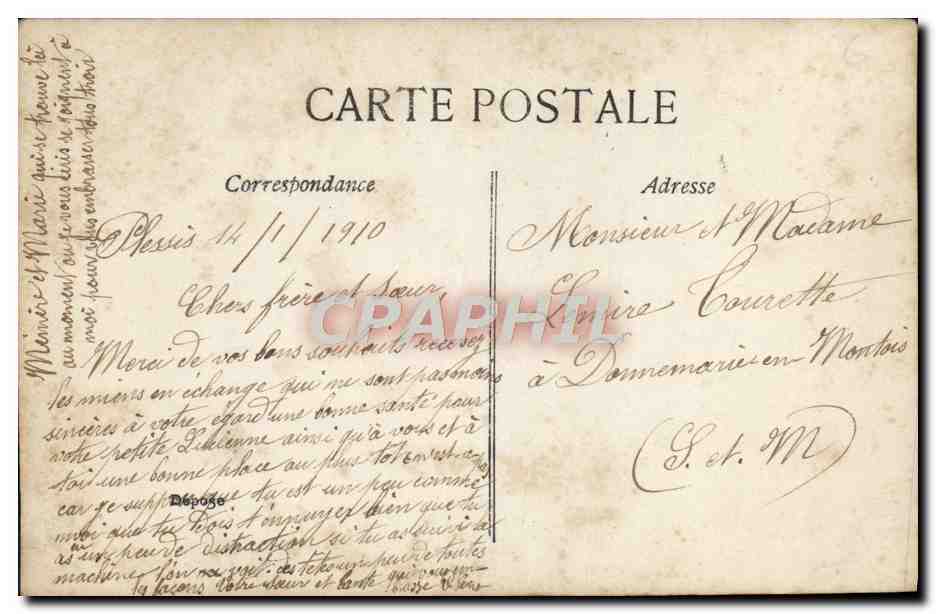 CARTE POSTALE
Correspondance
Adresse
Plessis 14/1/1910
Chers frère et sœur,
Merci de vos bons souhaits recevez
les miens en échange qui ne sont pas moins
sincères à votre égard une bonne santé pour
votre petite Lucienne ainsi qu'à vous et à
toi une bonne place au plus tot
car je suppose que tu est un peu comme
moi que tu dois t'ennuyer bien que tu
as un peu de distraction si tu as suivi a
machine l'on
les façons Votre sœur et tante qui vous em-
brasse
Mémère et Marie qui se trouve là
au moment où je vous écris se joignent à
moi pour vous embrasser tous trois
Monsieur et Madame
Lemire Tourette
à Donnemarie-en-Montois
(S. et. M)
Déposé
CPAPHIL